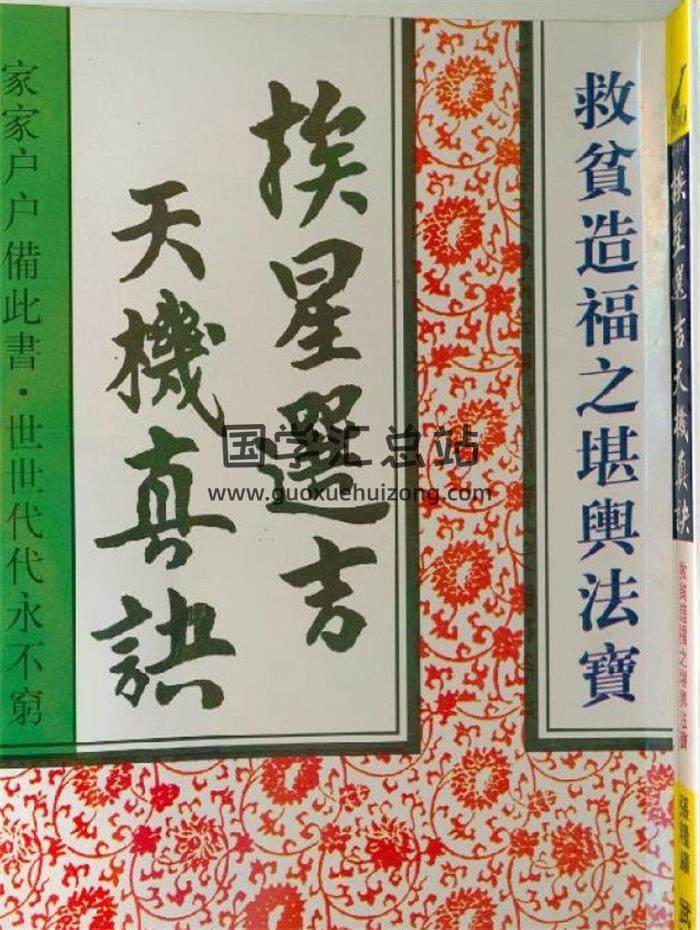 救貧造福之堪輿法寶
挨星選吉
天機真訣
家家户户備此書·世世代代永不窮
挨星選吉天機真訣
救貧造福之堪輿法寶
国学汇总站
www.guoxuehuizong.com